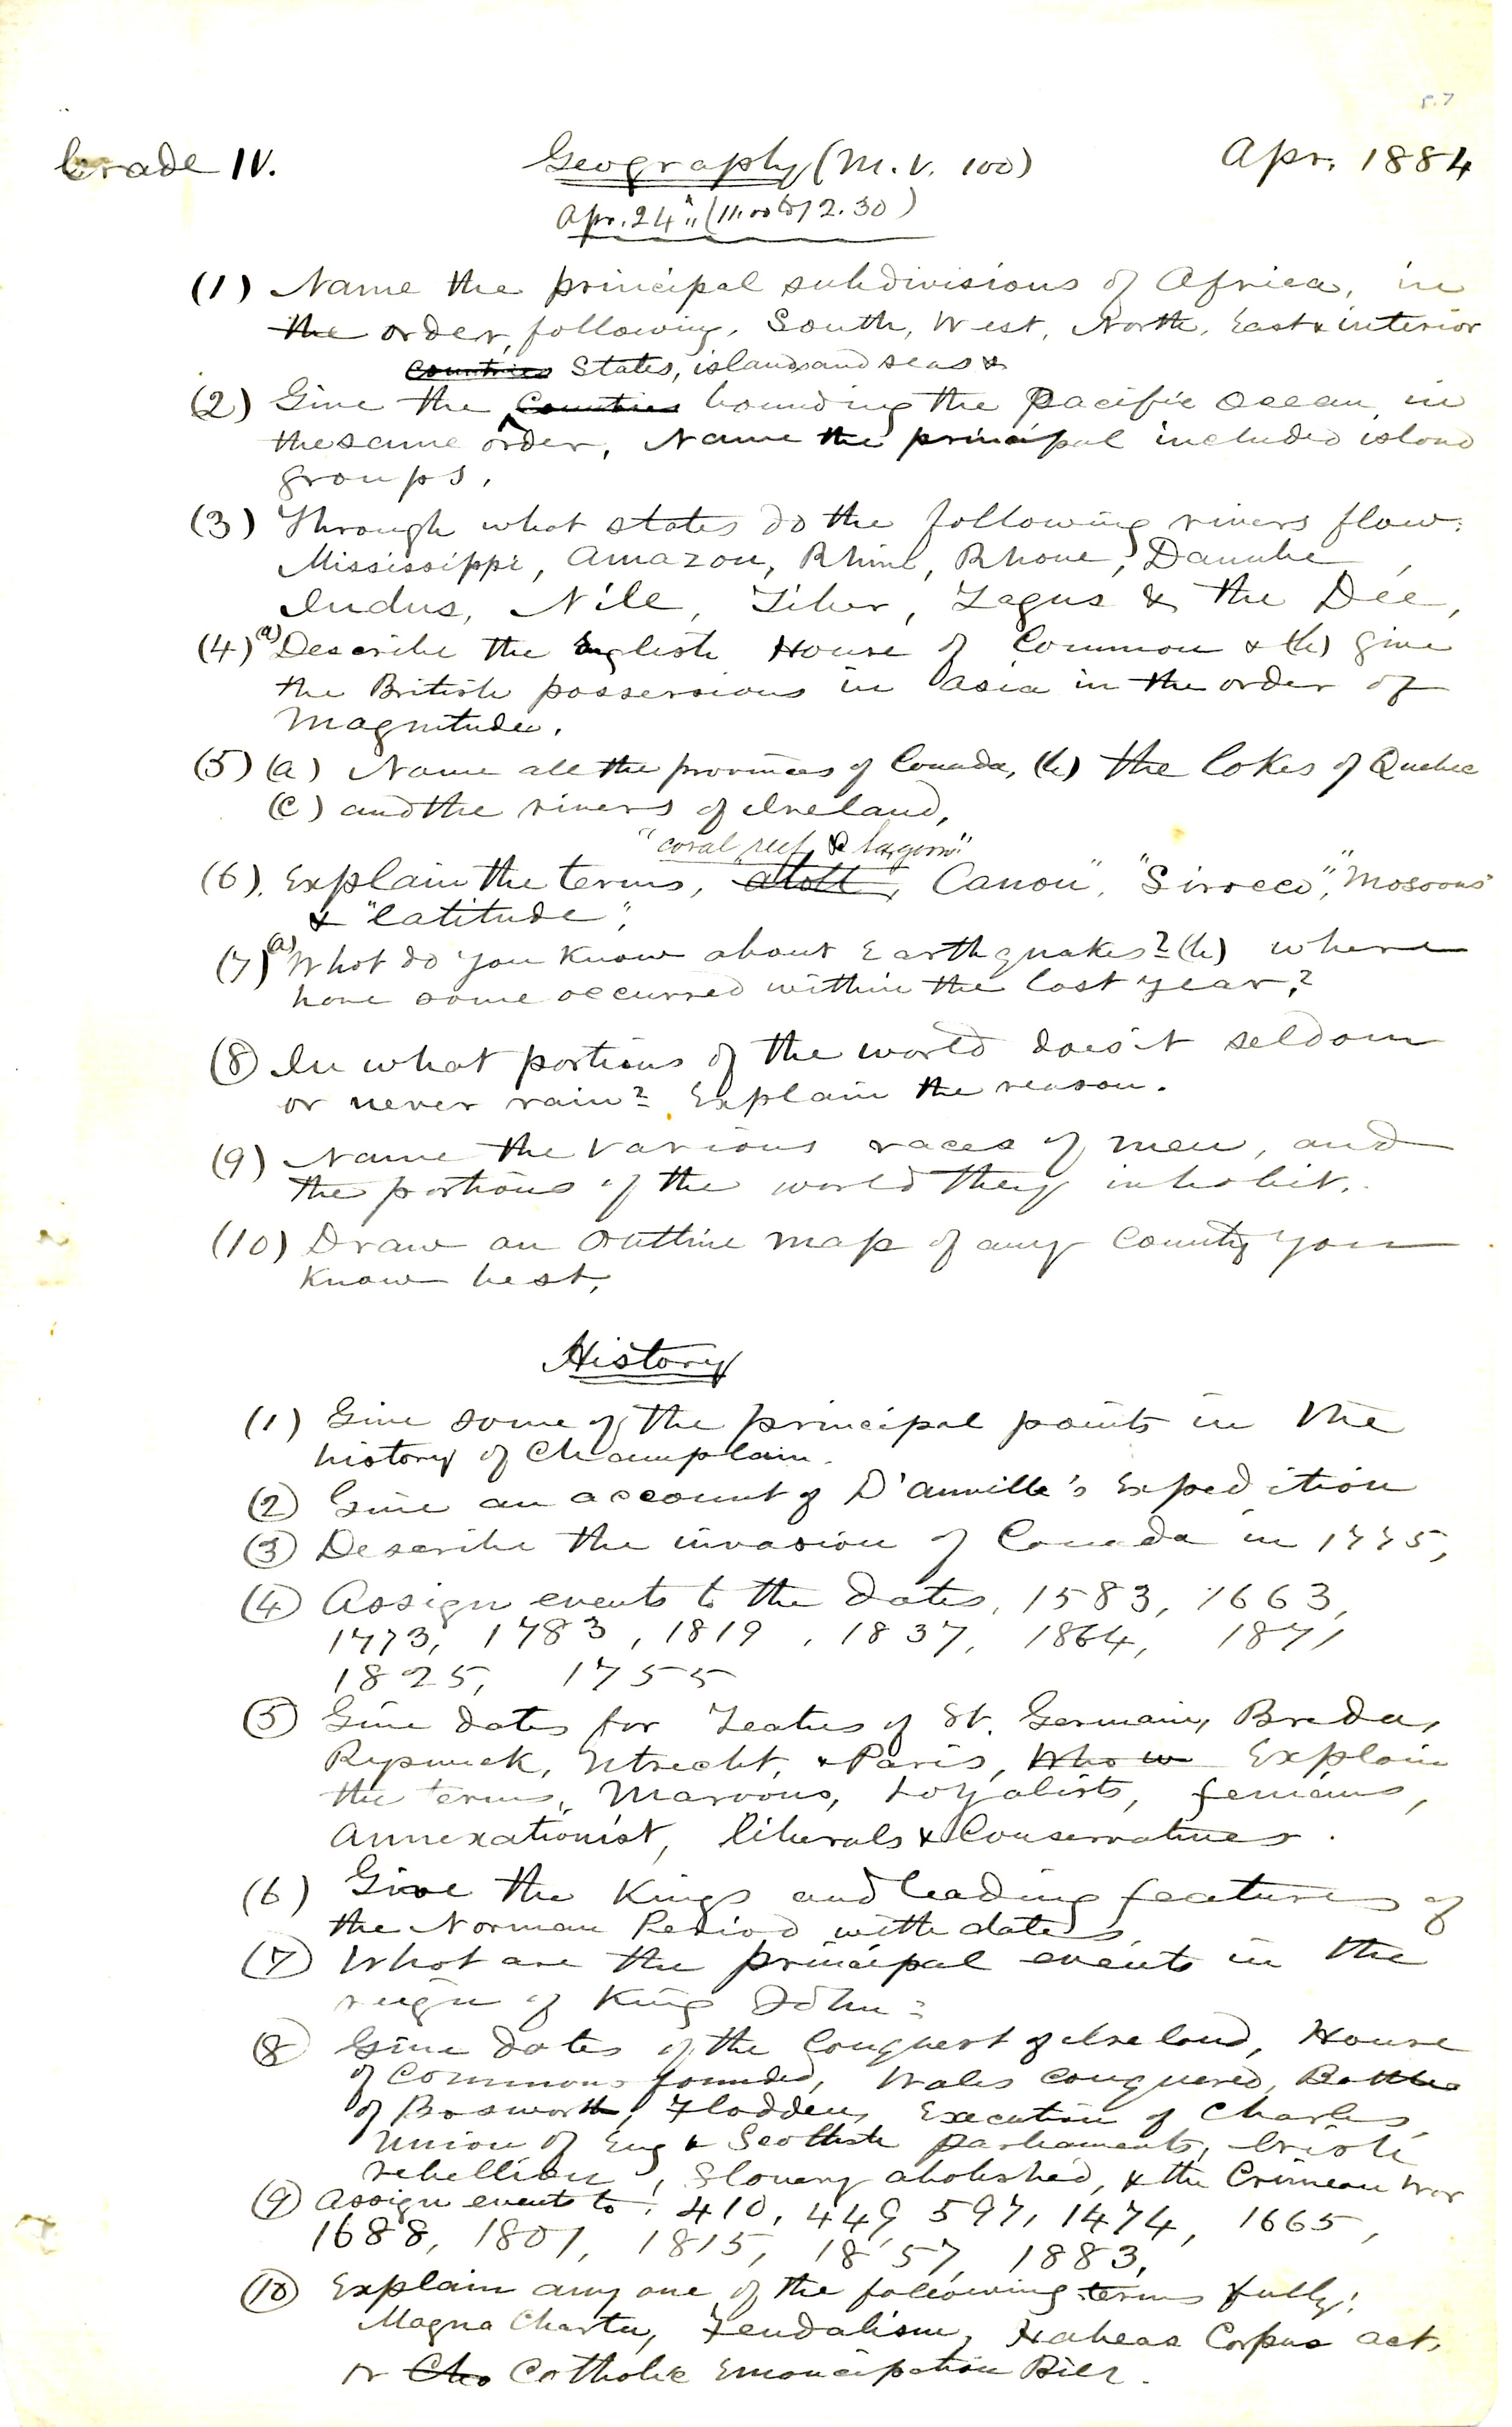 p.7
Grade IV. Geography (M.V. 100) Apr. 1884
Apr. 24th (11.00 to 12.30)
(1) Name the principal subdivisions of Africa, in
the order, following, South, West, North, East & interior
Countries States, islands and seas &
(2) Give the Countries bounding the Pacific Ocean, in
the same order. Name the principal included island
groups.
(3) Through what states do the following rivers flow:
Mississippi, Amazon, Rhine, Rhone, Danube,
Indus, Nile, Tiber, Tagus & the Dee,
(4) (a) Describe the English House of Common & (b) give
the British possessions in Asia in the order of
magnitude.
(5) (a) Name all the provinces of Canada, (b) the lakes of Quebec
(c) and the rivers of Ireland,
"coral reef & lagoon"
(6). Explain the terms, atoll", Canon", "Sirocco", "Mosoons"
& "latitude",
(7) (a) What do you know about Earthquakes? (b) where
have some occurred within the last year?
(8) In what portions of the world does it seldom
or never rain? Explain the reason.
(9) Name the various races of men, and
the portions of the world they inhabit.
(10) Draw an outline map of any county you
know best,
History
(1) Give some of the principal points in the
history of Champlain.
(2) Give an account of D'anville's Expedition
(3) Describe the invasion of Canada in 1775,
(4) Assign events to the dates, 1583, 1663,
1773, 1783, 1819, 1837, 1864, 1871
1825, 1755
(5) Give dates for Teaties of St. Germain, Breda,
Rypwick, Utrecht, & Paris, Who w Explain
the terms, Maroons, Loyalists, fenians,
Annexationist, liberals & Conservatives.
(6) Give the Kings and leading features of
the Norman Period with dates
(7) What are the principal events in the
reign of King John?
(8) Give dates of the Conquest of Ireland, House
of Commons founded, Wales conquered, Battles
of Bosworth, Flodden, Execution of Charles,
Union of Eng & Scottish parliaments, Irish
rebellion, Slavery abolished, & the Crimean War
(9) Assign events to: 410, 449, 597, 1474, 1665,
1688, 1801, 1815, 1857, 1883,
(10) Explain any one of the following terms fully:
Magna Charta, Feudalism, Habeas Corpus act,
or Cho Catholic Emancipation Bill.